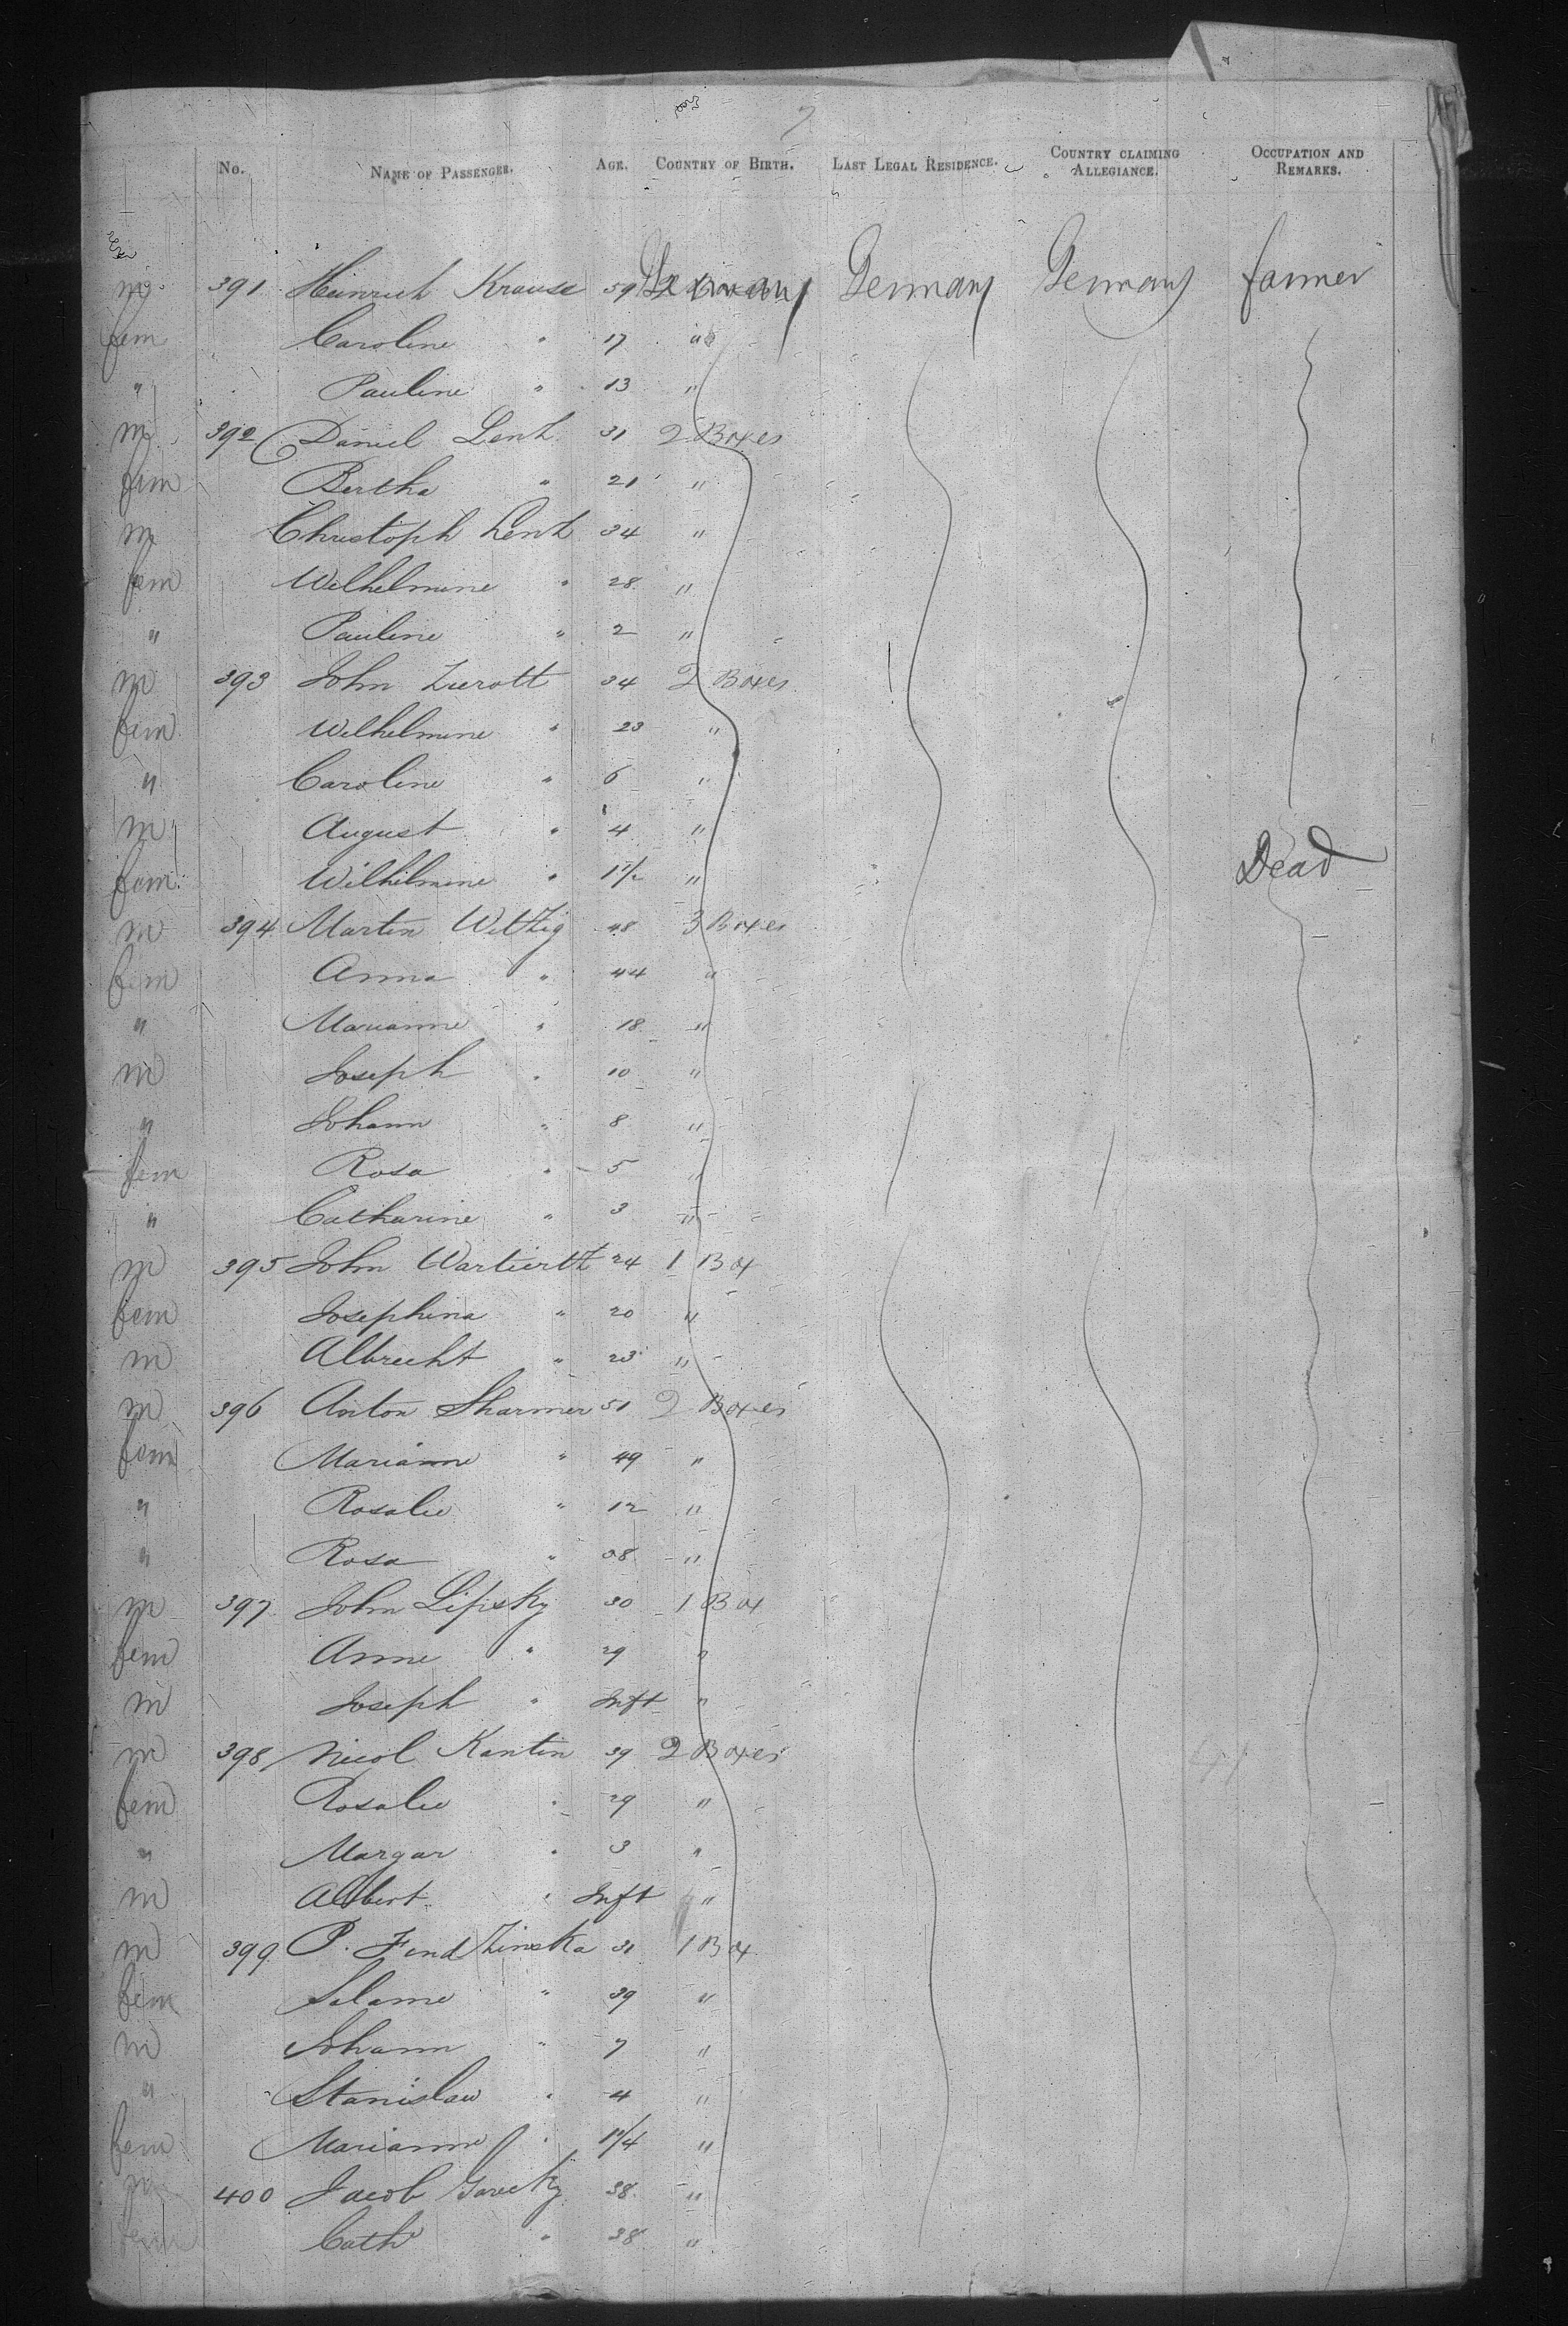 7
No. Name of Passenger. Age. Country of Birth. Last Legal Residence. Country claiming Allegiance. Occupation and Remarks.
m 391 Heinrich Krause 59 Germany Germany Germany farmer
fem Caroline " 17 "
" Pauline " 13 "
m 392 Daniel Lenk 31 2 Boxes
fem Bertha " 21 "
m Christoph Lenk 34 "
fem Wilhelmine " 28 "
" Pauline " 2 "
m 393 John Zurott 34 2 Boxes
fem Wilhelmine " 23 "
" Caroline " 6 "
m August " 4 "
fem Wilhelmine " 1 1/2 " Dead
m 394 Martin Witzig 48 3 Boxes
fem Anna " 44 "
" Marianne " 18 "
m Joseph " 10 "
" Johann " 8 "
fem Rosa " 5 "
" Catharine " 3 "
m 395 John 24 1 Box
fem Josephina " 20 "
m Albrecht " 23 "
m 396 Anton Sharmer 51 2 Boxes
fem Marianne " 49 "
" Rosalie " 12 "
" Rosa " 08 "
m 397 John Lipsky 30 1 Box
fem Anne " 29 "
m Joseph " Inft "
m 398 Nicol Kantin 39 2 Boxes
fem Rosalie " 29 "
" Margar " 3 "
m Albert " Inft "
m 399 P. 31 1 Box
fem Salame " 39 "
m Johann " 7 "
" Stanislaw " 4 "
fem Marianne " "
m 400 Jacob 38 "
fem Cath " 38 "